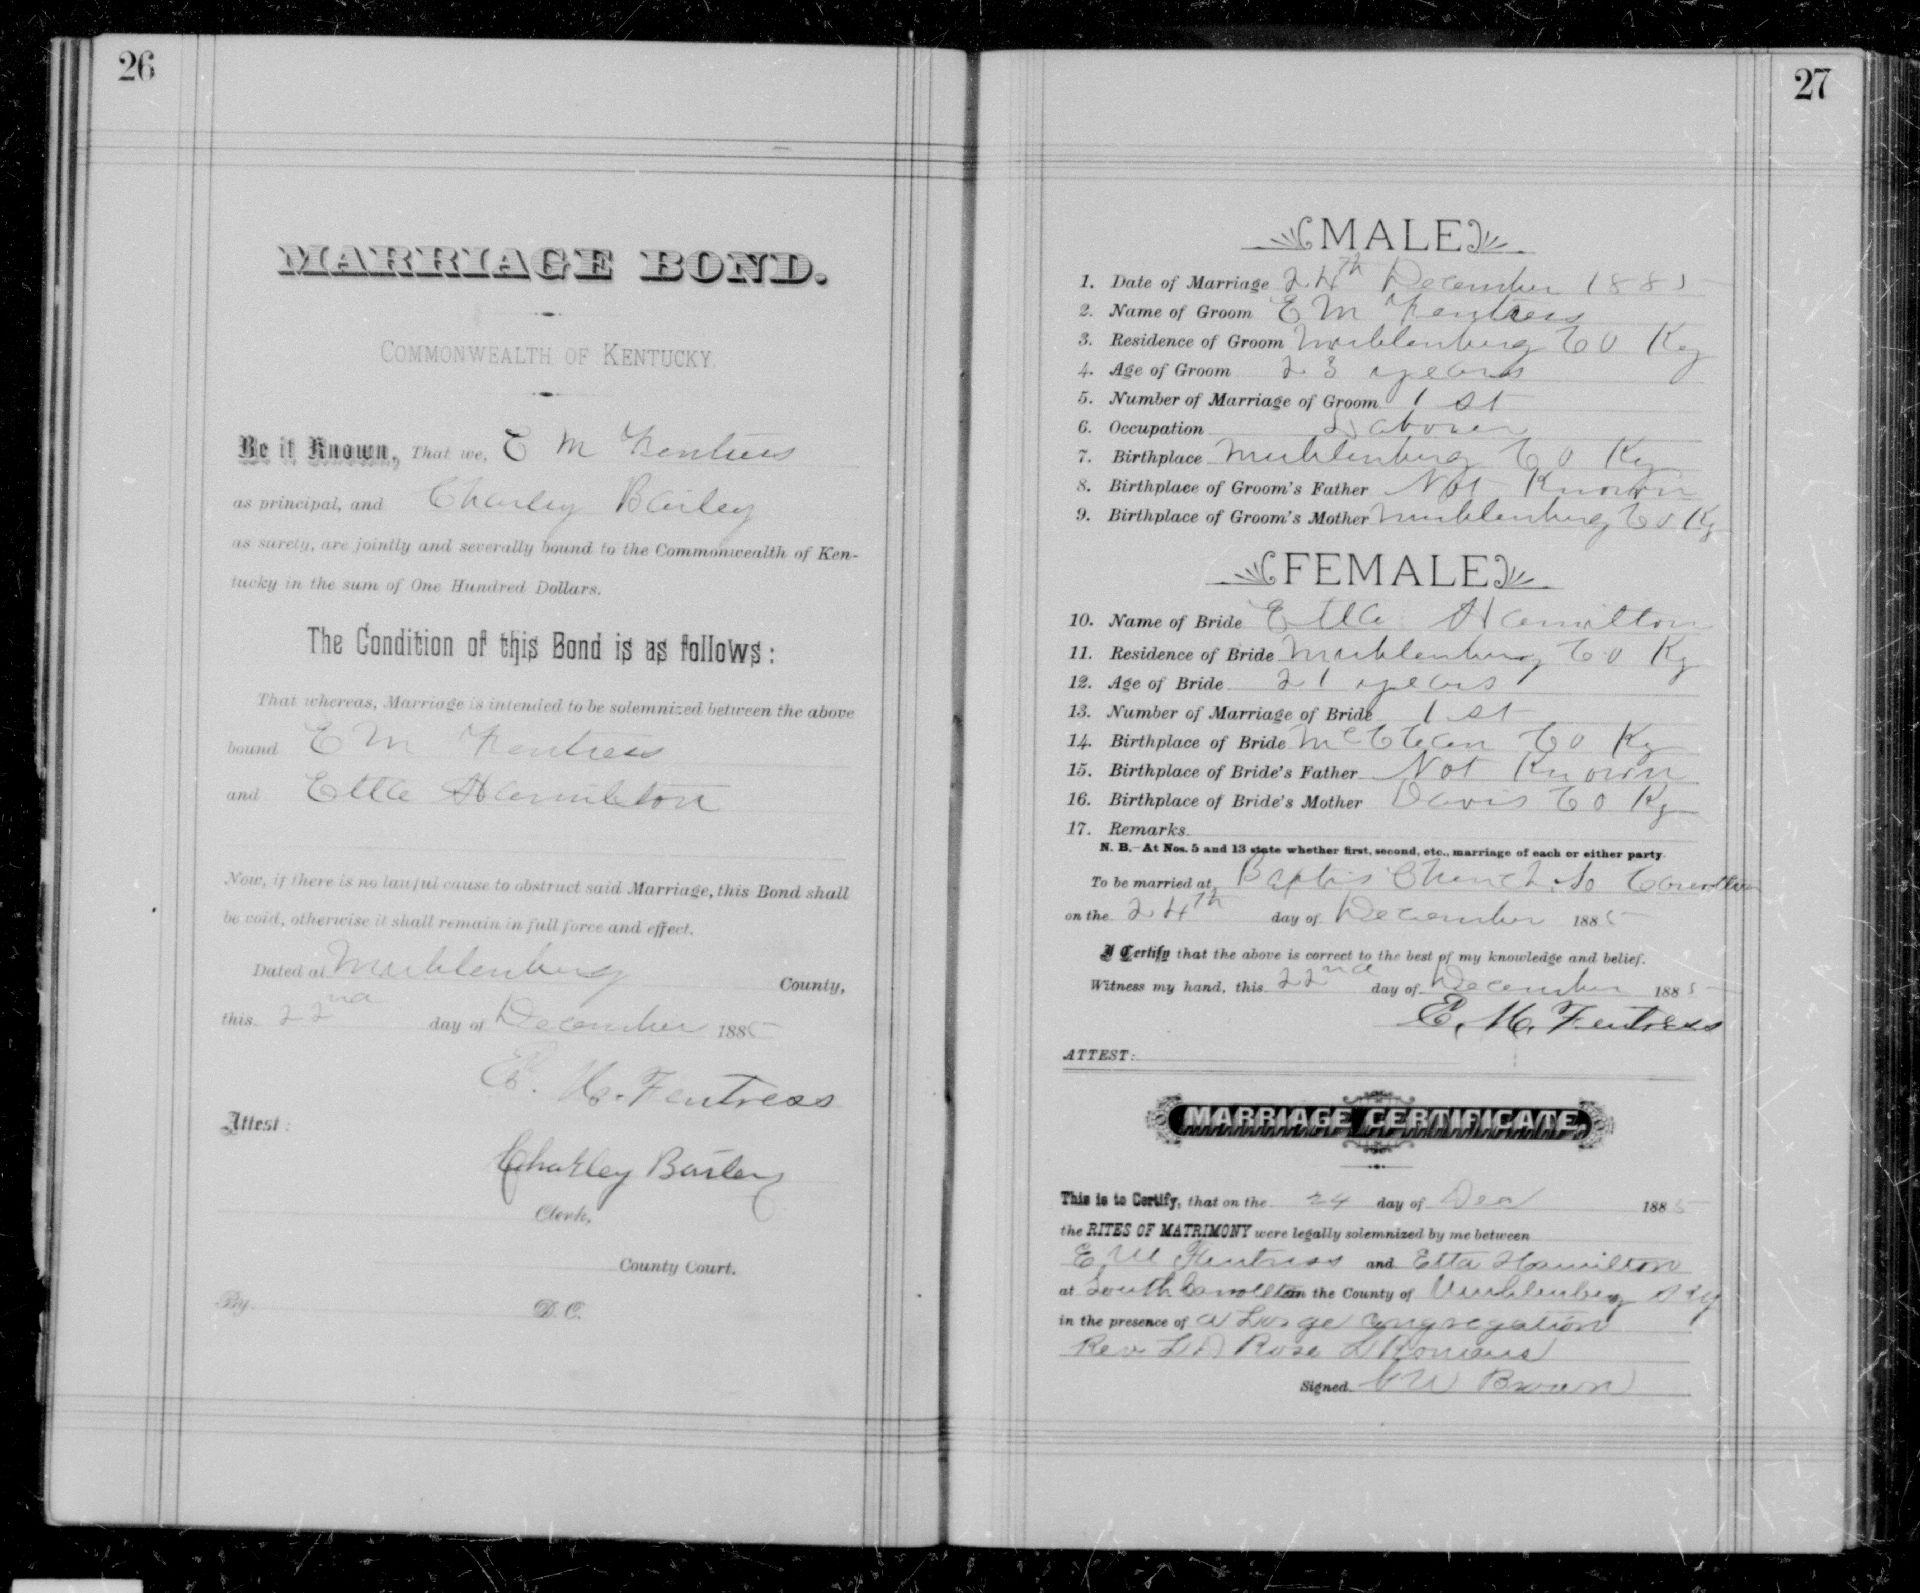 26
MARRIAGE BOND.
COMMONWEALTH OF KENTUCKY.
Be it Known, That we, E M Fentress
as principal, and Charley Bailey
as surety, are jointly and severally bound to the Commonwealth of Ken-
tucky in the sum of One Hundred Dollars.
The Condition of this Bond is as follows:
That whereas, Marriage is intended to be solemnized between the above
bound E M Fentress
and Etta Hamilton
Now, if there is no lawful cause to obstruct said Marriage, this Bond shall
be void, otherwise it shall remain in full force and effect.
Dated at Muhlenburg County,
this 22nd day of December 1885
E. M. Fentress
Attest:
Charley Bailey
Clerk,
County Court.
By. D. C.
27
MALE
1. Date of Marriage 24th December 1885
2. Name of Groom E M Fentress
3. Residence of Groom Muhlenburg Co Ky
4. Age of Groom 23 years
5. Number of Marriage of Groom 1st
6. Occupation Laborer
7. Birthplace Muhlenburg Co Ky
8. Birthplace of Groom's Father Not Known
9. Birthplace of Groom's Mother Muhlenburg Co Ky
FEMALE
10. Name of Bride Etta Hamilton
11. Residence of Bride Muhlenburg Co Ky
12. Age of Bride 21 years
13. Number of Marriage of Bride 1st
14. Birthplace of Bride McClean Co Ky
15. Birthplace of Bride's Father Not Known
16. Birthplace of Bride's Mother Davis Co Ky
17. Remarks
N. B.—At Nos. 5 and 13 state whether first, second, etc., marriage of each or either party.
To be married at Baptis Church So Carrollton
on the 24th day of December 1885
I Certify that the above is correct to the best of my knowledge and belief.
Witness my hand, this 22nd day of December 1885
E. M. Fentress
ATTEST:
MARRIAGE CERTIFICATE.
This is to Certify, that on the 24 day of Dec 1885
the RITES OF MATRIMONY were legally solemnized by me between
E M Fentress and Etta Hamilton
at South Carrollton in the County of Muhlenburg Ky
in the presence of a Large Congregation
Rev. L D Rose L Romans
Signed. W Brown